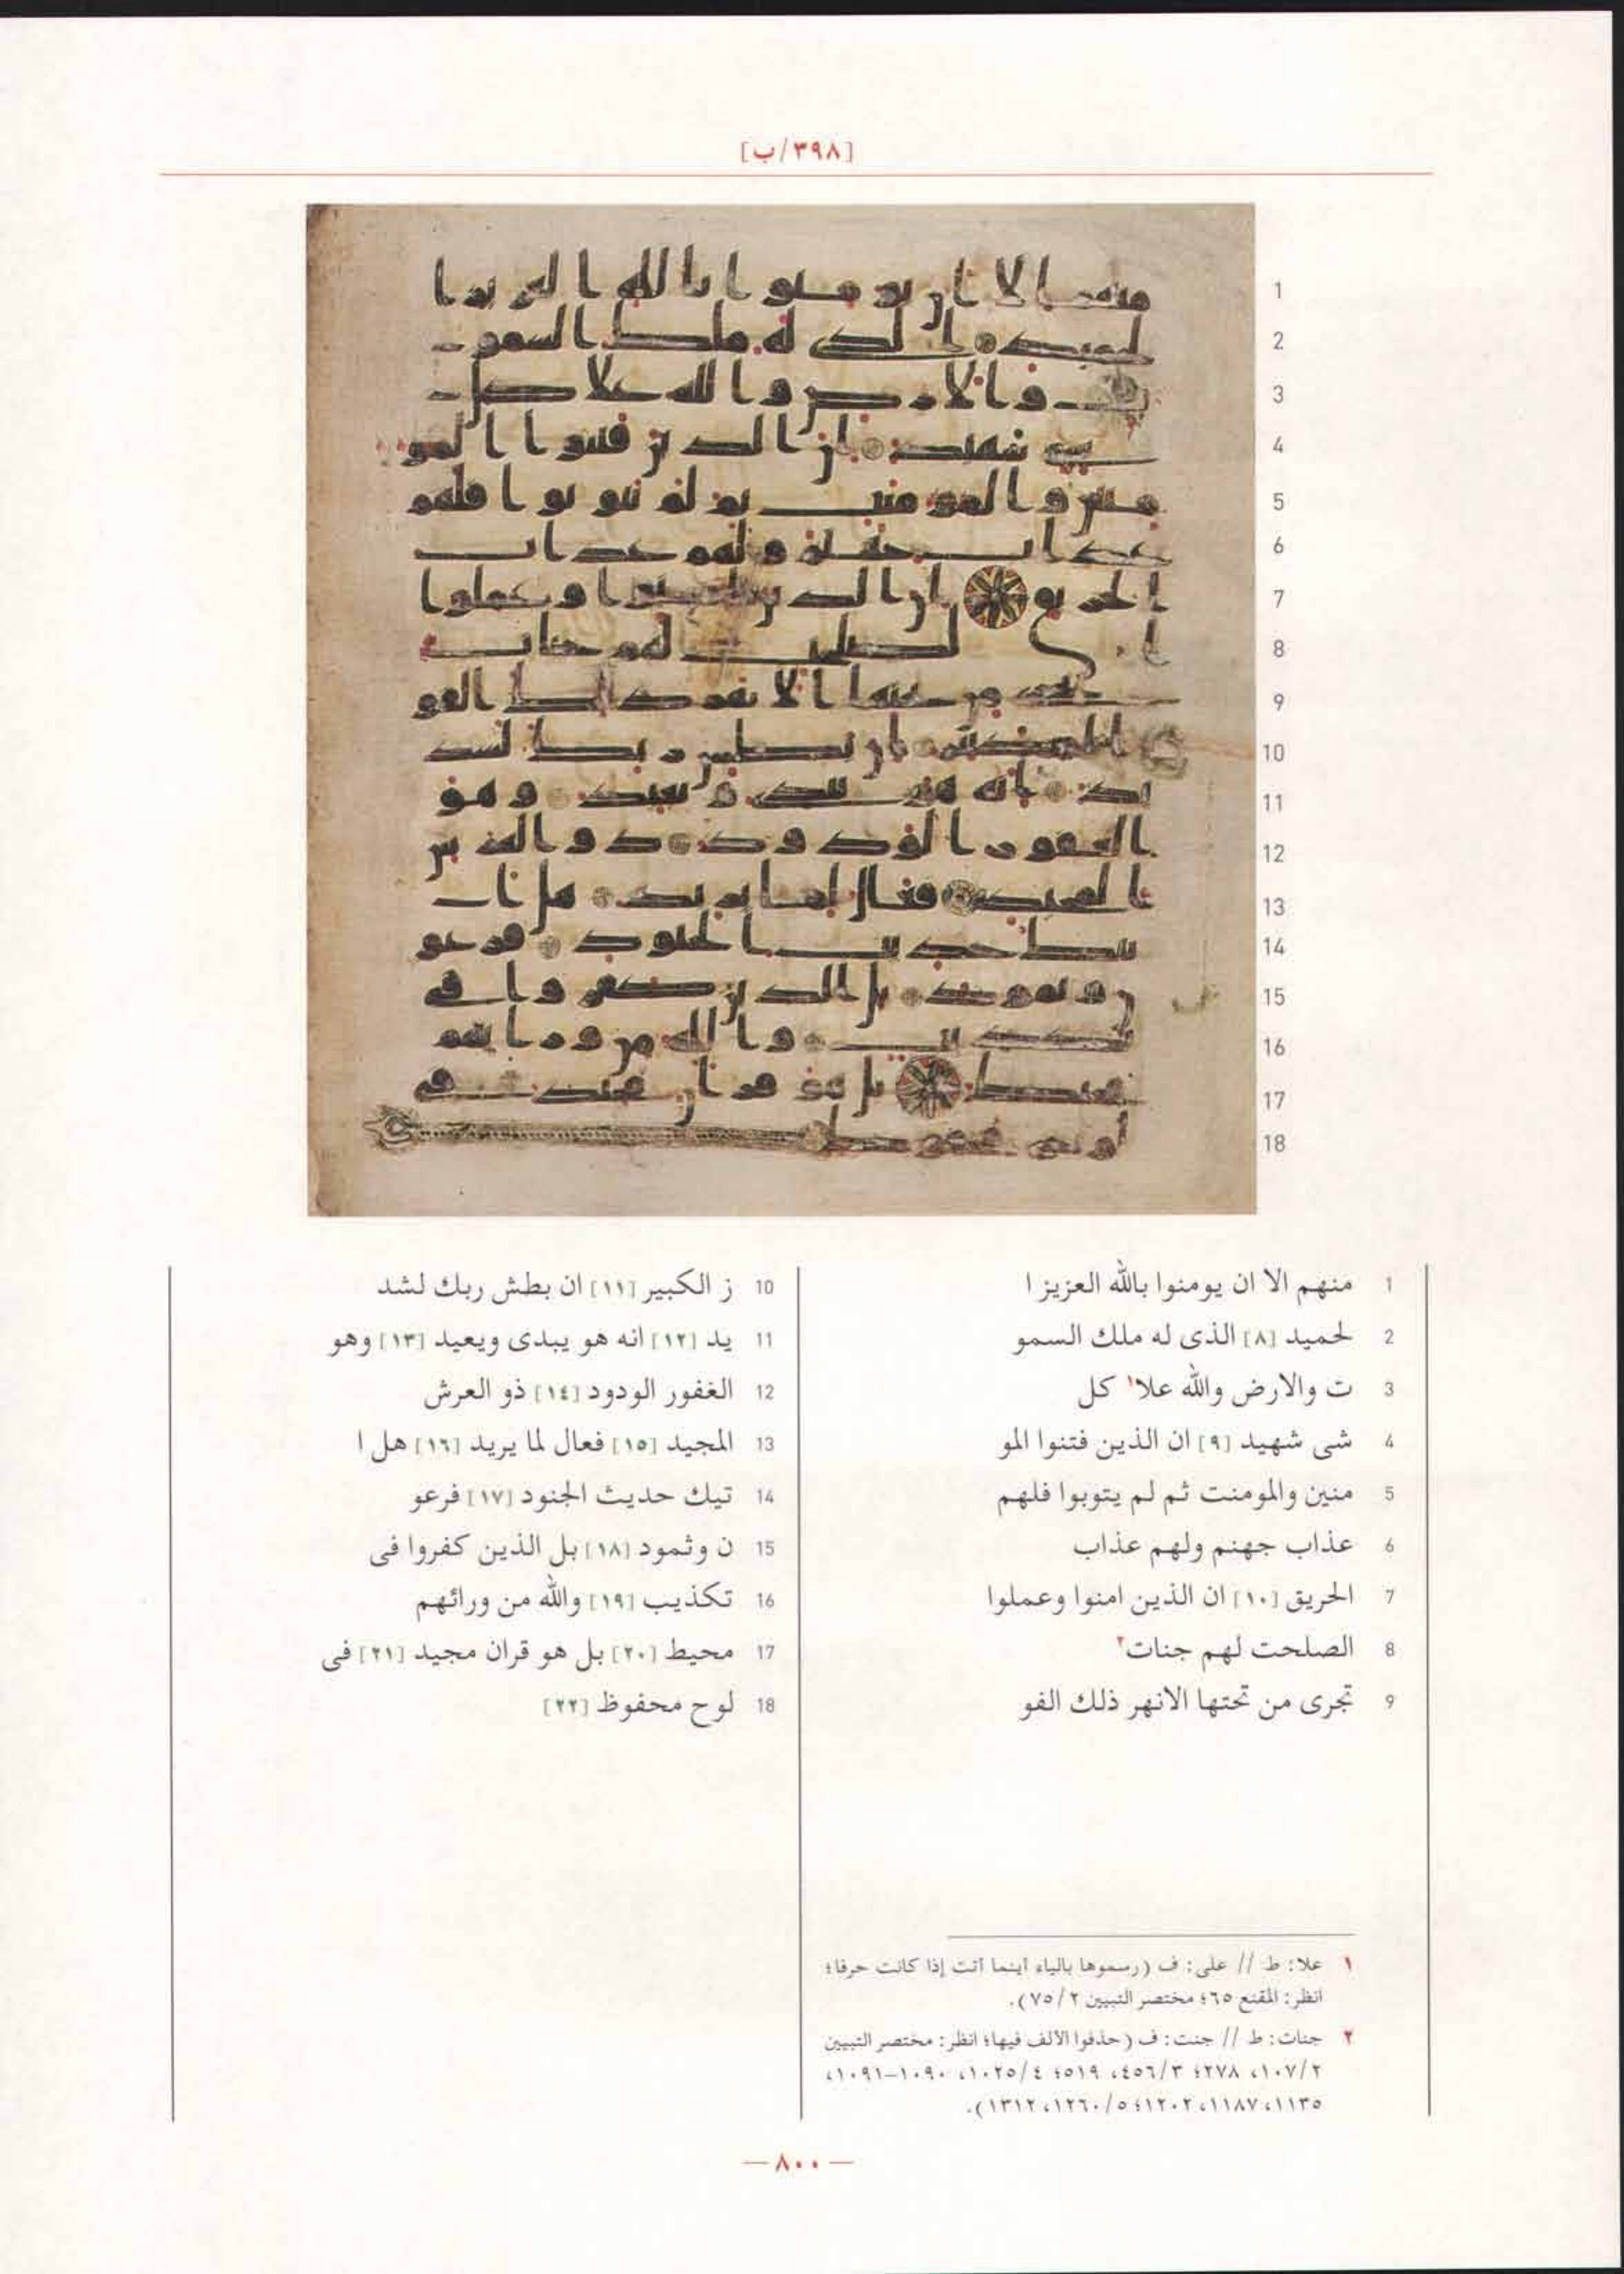 [٣٩٨/ب]
1 منهم الا ان يومنوا بالله العزيز ا
2 لحميد [٨] الذى له ملك السمو
3 ت والارض والله علا١ كل
4 شى شهيد [٩] ان الذين فتنوا المو
5 منين والمومنت ثم لم يتوبوا فلهم
6 عذاب جهنم ولهم عذاب
7 الحريق [١٠] ان الذين امنوا وعملوا
8 الصلحت لهم جنات٢
9 تجرى من تحتها الانهر ذلك الفو
10 ز الكبير [١١] ان بطش ربك لشد
11 يد [١٢] انه هو يبدى ويعيد [١٣] وهو
12 الغفور الودود [١٤] ذو العرش
13 المجيد [١٥] فعال لما يريد [١٦] هل ا
14 تيك حديث الجنود [١٧] فرعو
15 ن وثمود [١٨] بل الذين كفروا فى
16 تكذيب [١٩] والله من ورائهم
17 محيط [٢٠] بل هو قران مجيد [٢١] فى
18 لوح محفوظ [٢٢]
١ علا: ط // على: ف (رسموها بالياء أينما أتت إذا كانت حرفا؛
انظر: المقنع ٦٥؛ مختصر التبيين ٧٥/٢).
٢ جنات: ط // جنت: ف (حذفوا الألف فيها؛ انظر: مختصر التبيين
١٠٧/٢، ٢٧٨؛ ٤٥٦/٣، ٥١٩؛ ١٠٢٥/٤، ١٠٩٠-١٠٩١،
١١٣٥، ١١٨٧، ١٢٠٢؛ ١٢٦٠/٥، ١٣١٢).
— ٨٠٠ —